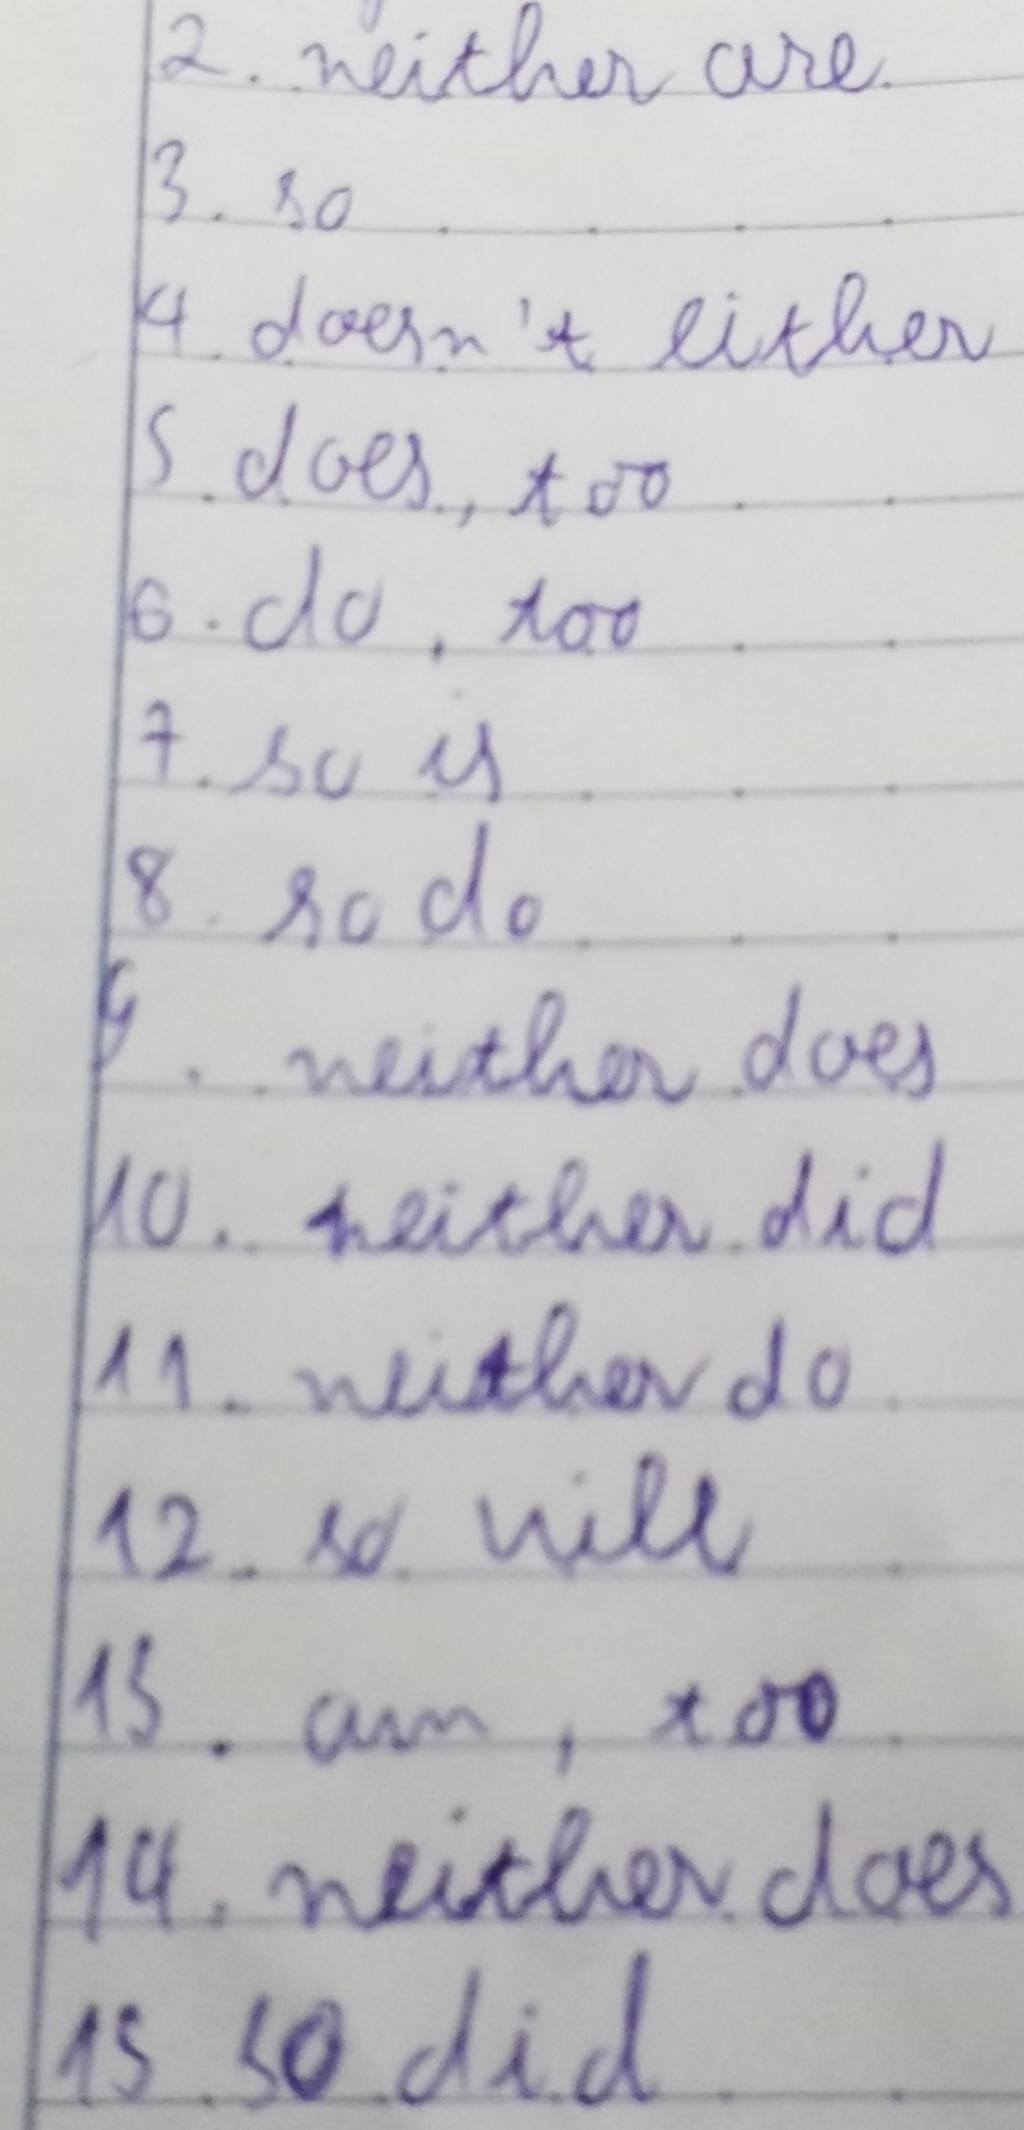 2. neither are
3. so
4. doesn't either
5. does, too
6. do, too
7. so is
8. so do
9. neither does
10. neither did
11. neither do
12. so will
13. am, too
14. neither does
15. so did